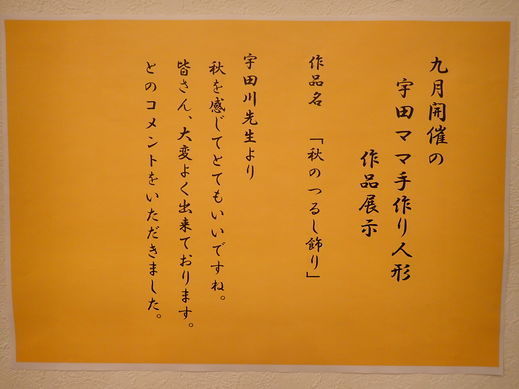 九月開催の
宇田ママ手作り人形
作品展示
作品名 「秋のつるし飾り」
宇田川先生より
秋を感じてとてもいいですね。
皆さん、大変よく出来ております。
とのコメントをいただきました。